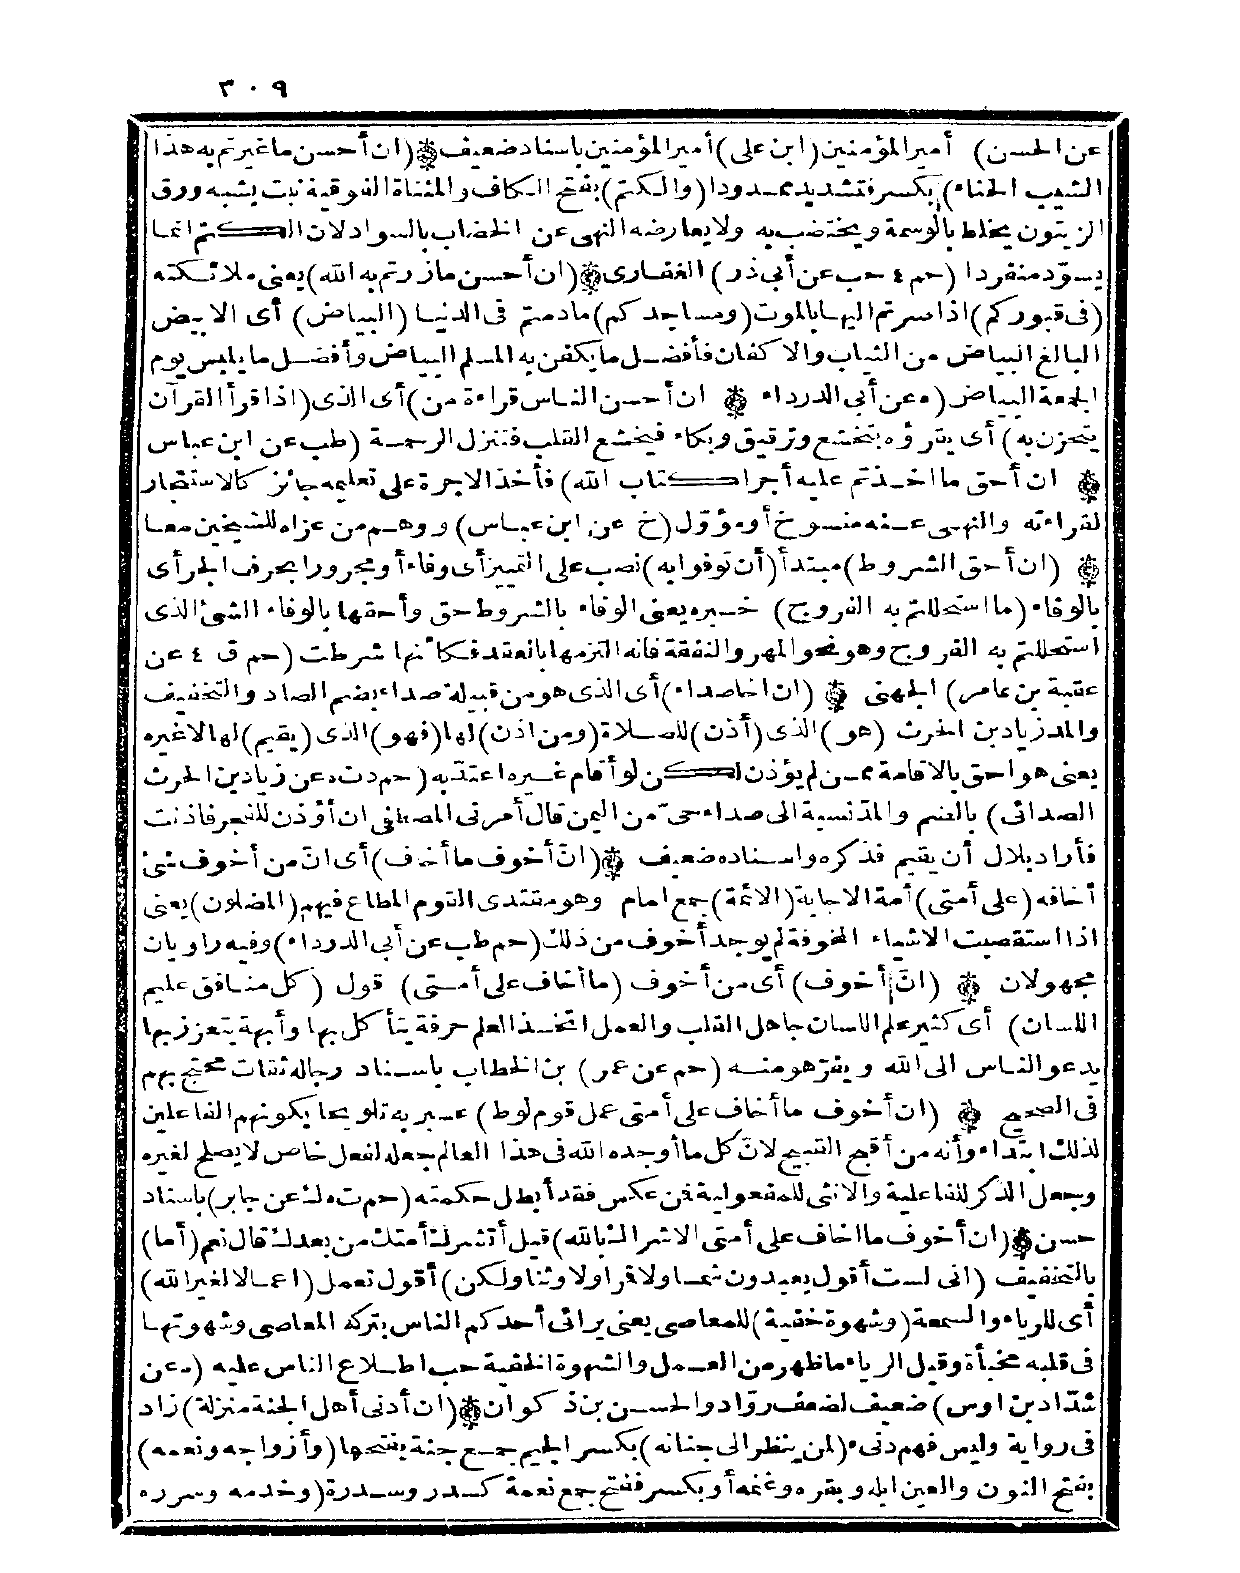 ٣٠٩
عن الحسن) أمير المؤمنين (ابن على) أمير المؤمنين باسناد ضعيف ۞ (ان أحسن ما غيرتم به هذا
الشيب الحناء) بكسر فتشديد ممدودا (والكتم) بفتح الكاف والمثناة الفوقية نبت يشبه ورق
الزيتون يخلط بالوسمة ويختضب به ولا يعارضه النهى عن الخضاب بالسواد لان الكتم انما
يسوّد منفردا (حم ٤ حب عن أبى ذر) الغفارى ۞ (ان أحسن ما زرتم به الله) يعنى ملائكته
(فى قبوركم) اذا صرتم اليها بالموت (ومساجدكم) مادمتم فى الدنيا (البياض) أى الابيض
البالغ البياض من الثياب والاكفان فأفضل ما يكفن به المسلم البياض وأفضل ما يلبس يوم
الجمعة البياض (ه عن أبى الدرداء ۞ ان أحسن الناس قراءة من) أى الذى (اذا قرأ القرآن
يتحزن به) أى يقرؤه بتخشع وترقيق وبكاء فيخشع القلب فتنزل الرحمة (طب عن ابن عباس
۞ ان أحق ما اخذتم عليه أجرا كتاب الله) فأخذ الاجرة على تعليمه جائز كالاستئجار
لقراءته والنهى عنه منسوخ أو مؤوّل (خ عن ابن عباس) ووهم من عزاه للشيخين معا
۞ (ان أحق الشروط) مبتدأ (أن توفوا به) نصب على التمييز أى وفاء أو مجرورا بحرف الجر أى
بالوفاء (ما استحللتم به الفروج) خبره يعنى الوفاء بالشروط حق وأحقها بالوفاء الشئ الذى
استحللتم به الفروج وهو نحو المهر والنفقة فانه التزمها بالعقد فكأنها شرطت (حم ق ٤ عن
عقبة بن عامر) الجهنى ۞ (ان اخاصداء) أى الذى هو من قبيلة صداء بضم الصاد والتخفيف
والمد زياد بن الحرث (هو) الذى (أذن) للصلاة (ومن اذن) لها (فهو) الذى (يقيم) لها لا غيره
يعنى هو احق بالاقامة ممن لم يؤذن لكن لو أقام غيره اعتد به (حم د ت ه عن زياد بن الحرث
الصدائى) بالضم والمد نسبة الى صداء حىّ من اليمن قال أمرنى المصطفى ان أؤذن للفجر فاذنت
فأراد بلال أن يقيم فذكره واسناده ضعيف ۞ (انّ أخوف ما أخاف) أى انّ من أخوف شئ
أخافه (على أمتى) أمة الاجابة (الائمة) جمع امام وهو مقتدى القوم المطاع فيهم (المضلون) يعنى
اذا استقصيت الاشياء المخوفة لم يوجد أخوف من ذلك (حم طب عن أبى الدرداء) وفيه راويان
مجهولان ۞ (انّ أخوف) أى من أخوف (ما أخاف على أمتى) قول (كل منافق عليم
اللسان) أى كثير علم اللسان جاهل القلب والعمل اتخذ العلم حرفة يتأكل بها وأبهة يتعزز بها
يدعو الناس الى الله ويفر هو منه (حم عن عمر) بن الخطاب باسناد رجاله ثقات محتج بهم
فى الصحيح ۞ (ان أخوف ما أخاف على أمتى عمل قوم لوط) عبر به تلويحا بكونهم الفاعلين
لذلك ابتداء وأنه من أقبح القبيح لانّ كل ما أوجده الله فى هذا العالم جعله لفعل خاص لا يصلح لغيره
وجعل الذكر للفاعلية والانثى للمفعولية فمن عكس فقد أبطل حكمته (حم ت ه ك عن جابر) باسناد
حسن ۞ (ان أخوف ما اخاف على أمتى الاشراك بالله) قيل أتشرك أمتك من بعدك قال نعم (أما)
بالتخفيف (انى لست أقول يعبدون شمسا ولا قمرا ولا وثنا ولكن) أقول تعمل (اعمالا لغير الله)
أى للرياء والسمعة (وشهوة خفية) للمعاصى يعنى يرائى أحدكم الناس بتركه المعاصى وشهوتها
فى قلبه مخبأة وقيل الرياء ما ظهر من العمل والشهوة الخفية حب اطلاع الناس عليه (ه عن
شدّاد بن اوس) ضعيف لضعف روّاد والحسن بن ذكوان ۞ (ان أدنى أهل الجنة منزلة) زاد
فى رواية وليس فهم دنىء (لمن ينظر الى جنانه) بكسر الجيم جمع جنة بفتحها (وأزواجه ونعمه)
بفتح النون والعين ابله وبقره وغنمه أو بكسر ففتح جمع نعمة كسدر وسدرة (وخدمه وسرره